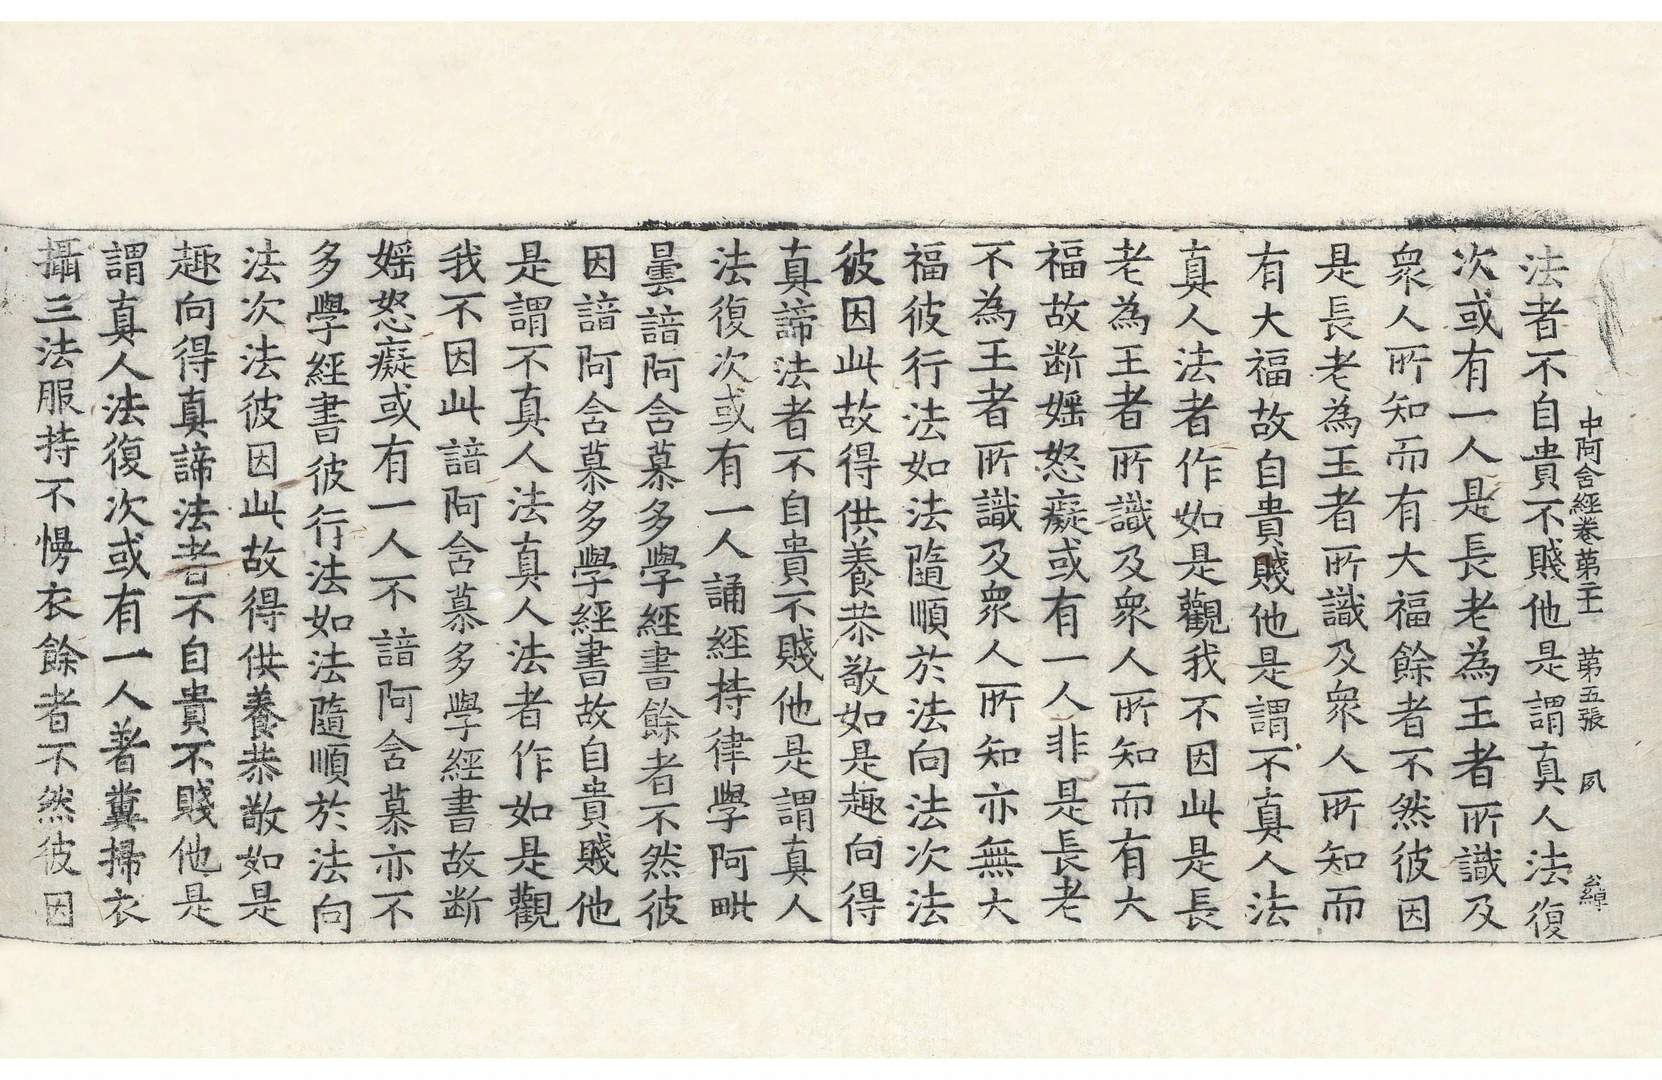 中阿含經卷苐二十一 苐五張 夙 公綽
法者不自貴不賤他是謂真人法復
次或有一人是長老為王者所識及
衆人所知而有大福餘者不然彼因
是長老為王者所識及衆人所知而
有大福故自貴賤他是謂不真人法
真人法者作如是觀我不因此是長
老為王者所識及衆人所知而有大
福故断婬怒癡或有一人非是長老
不為王者所識及衆人所知亦無大
福彼行法如法隨順於法向法次法
彼因此故得供養恭敬如是趣向得
真諦法者不自貴不賤他是謂真人
法復次或有一人誦經持律學阿毗
曇諳阿含慕多學經書餘者不然彼
因諳阿含慕多學經書故自貴賤他
是謂不真人法真人法者作如是觀
我不因此諳阿含慕多學經書故断
婬怒癡或有一人不諳阿含慕亦不
多學經書彼行法如法隨順於法向
法次法彼因此故得供養恭敬如是
趣向得真諦法者不自貴不賤他是
謂真人法復次或有一人著糞掃衣
攝三法服持不慢衣餘者不然彼因